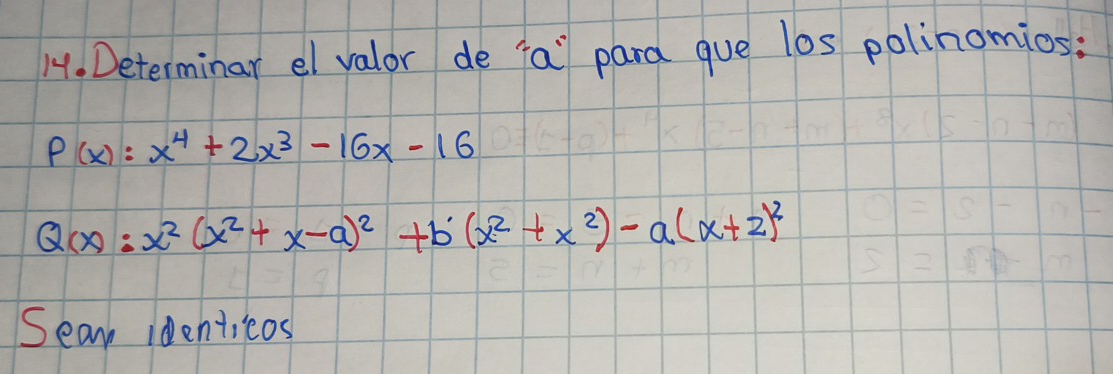 14. Determinar el valor de "a" para que los polinomios:
P(x): x⁴ + 2x³ - 16x - 16
Q(x): x² (x² + x - a)² + b (x² + x²) - a(x+2)²
Sean identicos